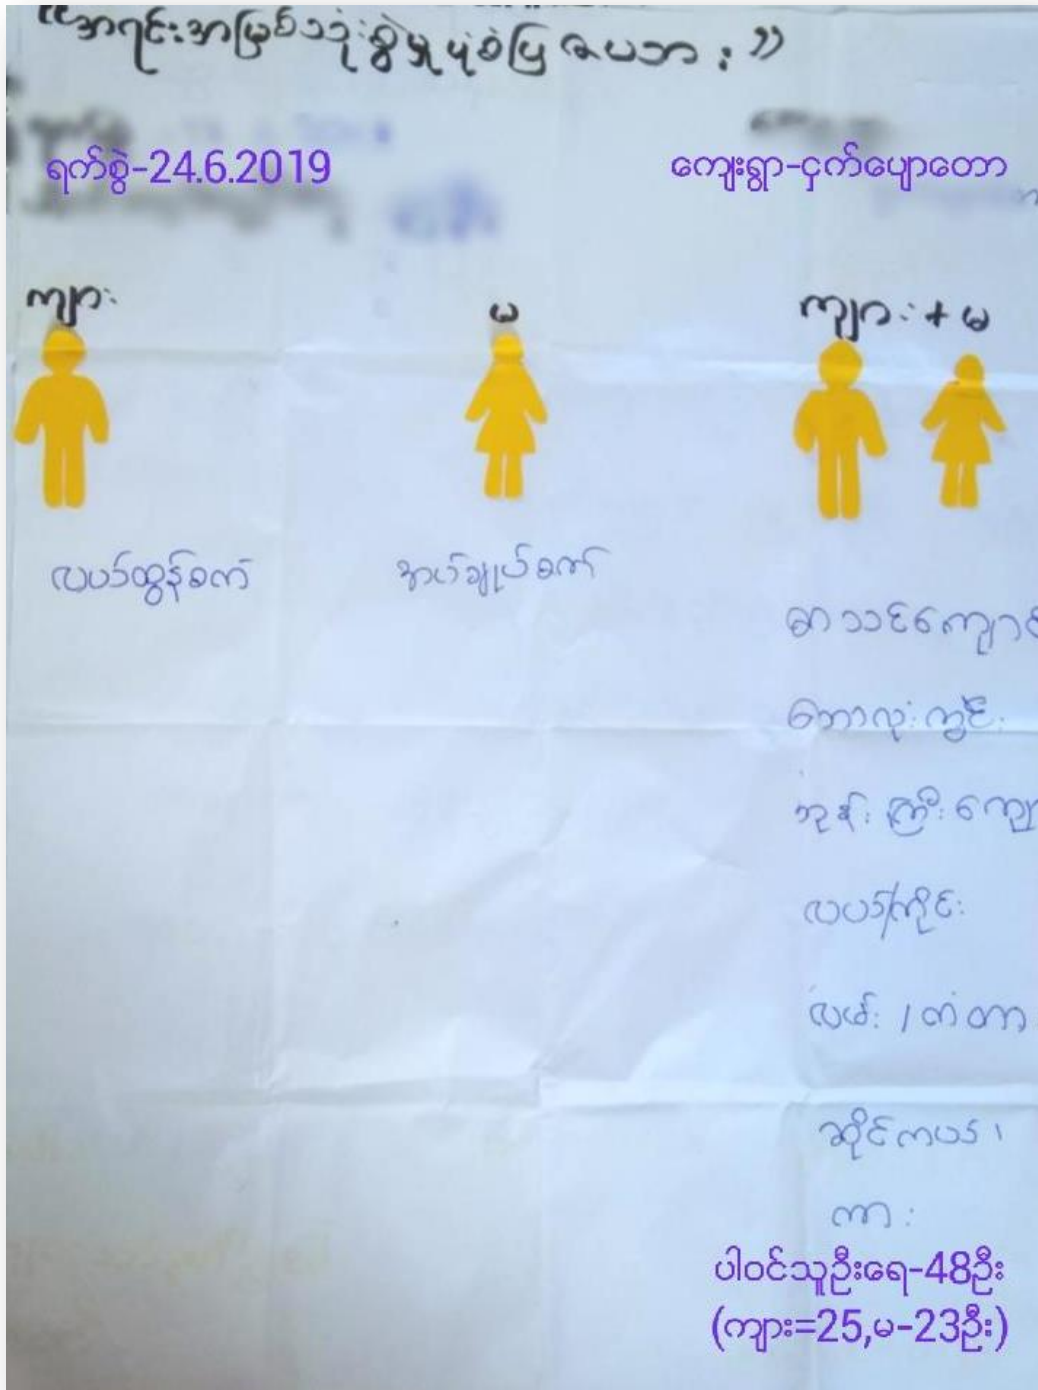 "အရင်းအမြစ်သုံးစွဲမှုပုံစံပြဇယား"
ရက်စွဲ-24.6.2019
ကျေးရွာ-ငှက်ပျောတော
ကျား
မ
ကျား + မ
လယ်ထွန်စက်
အပ်ချုပ်စက်
စာသင်ကျောင
ဘောလုံးကွင်း
ဘုန်းကြီးကျေ
လယ်/ကိုင်း
လမ်း / တံတာ
ဆိုင်ကယ်၊
ကား
ပါဝင်သူဦးရေ-48ဦး
(ကျား=25,မ-23ဦး)